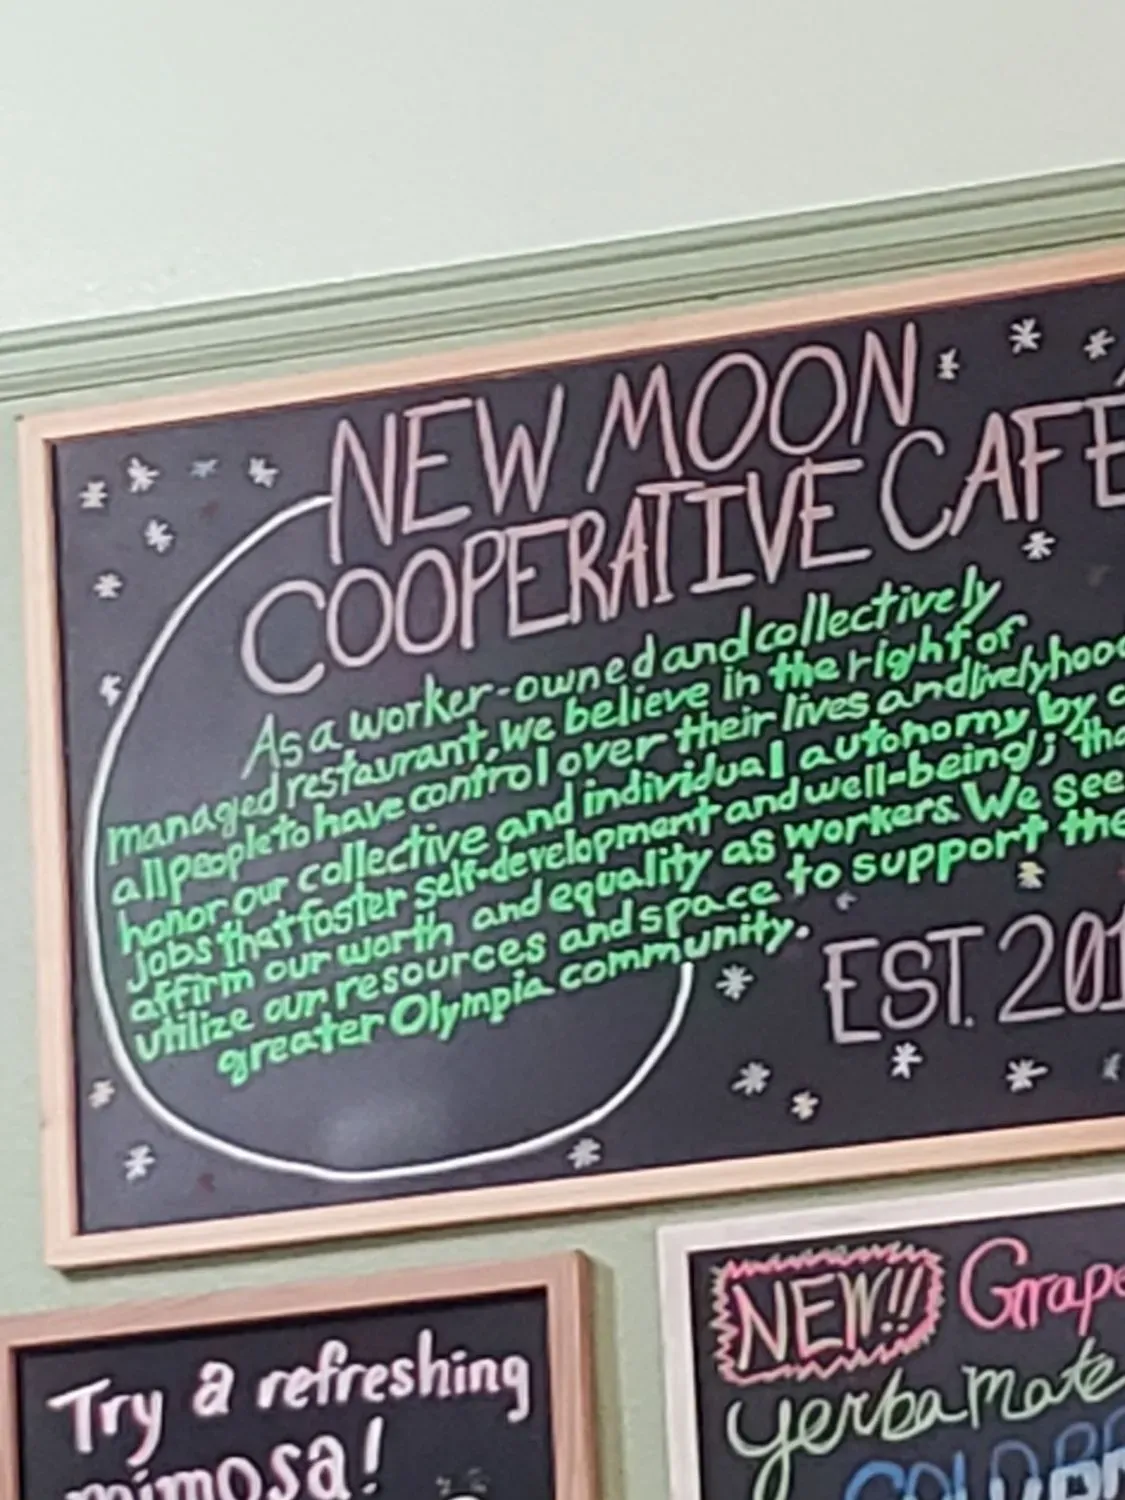 NEW MOON
COOPERATIVE CAFÉ
As a worker-owned and collectively
managed restaurant, we believe in the right of
all people to have control over their lives and livelyhood
honor our collective and individual autonomy by
jobs that foster self-development and well-being; tha
affirm our worth and equality as workers. We see
utilize our resources and space to support the
greater Olympia community.
EST. 201
NEW!! Grape
yerba mate
COLD BR
Try a refreshing
mimosa!